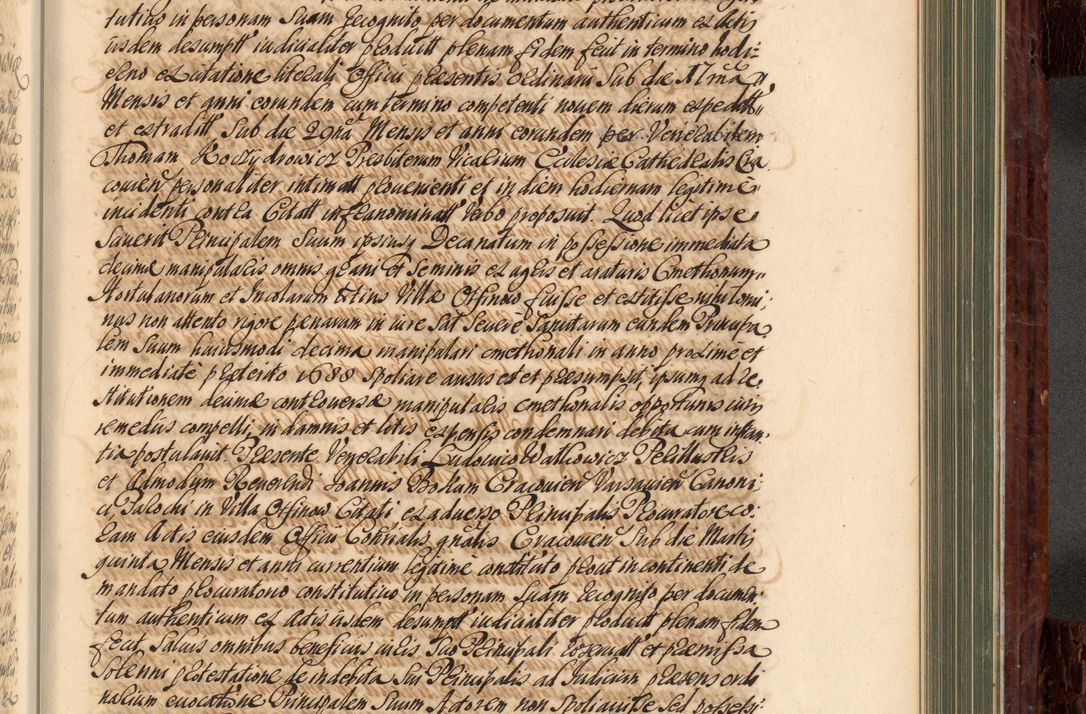 tutivo in personam Suam recognito per documentum authenticum ex actis
iisdem desumptt iudicialiter produxit plenam fidem fecit in termino hodi:
erno ex citatione literali Officii praesentis ordinarii Sub die 17ma
Mensis et anni eorundem cum termino competenti novem dierum expeditt
et extraditt Sub die 20ma Mensis et anni eorundem per Venerabilem
Thomam Koczydrowicz Presbiterum Vicarium Ecclesiae Cathedralis Cra
covien personaliter intimatt provenienti et in diem hodiernam legitime
incidenti contra Citatt infranominatt Verbo proposuit. Quod licet ipse
Sciverit Principalem Suum ipsiusq Decanatum in possessione immediata
decimae manipularis omnis grani et Seminis ex agris et araturis Cmethonum,,
Hortulanorum et Incolarum totius Villae Offinow fuisse et extitisse nihilomi:
nus non attento rigore paenarum in iure Sat Severe Sancitarum eundem Principa
lem Suum huiusmodi decima manipulari cmethonali in anno proxime et
immediate praeterito 1688 Spoliare ausus est et praesumpsit, ipsumq ad re:
stitutionem decimae controversae manipularis cmethonalis opportunis iuris
remediis compelli, in damnis et litis expensis condemnari debita cum instan:
tia postulavit Praesente Venerabili Ludovico Watkowicz Perillustris
et Admodum Reverendi Joannis Bokum Cracovien Varsavien Canoni:
ci, Parochi in Villa Offinow Citati ex adverso Principalis Procuratore co:
ram Actis eiusdem Officii Consrialis gnalis Cracovien Sub die Martij
quinta Mensis et anni currentium legitime constituto prout in continenti de
mandato procuratorio constitutivo in personam Suam recognito per documen
tum authenticum ex actis iisdem desumptt iudicialiter produxit plenam fidem
fecit, Salvis omnibus beneficiis iuris Suo Principali cogruatt et praemissa
Solenni protestatione de indebita Sui Principalis ad Iudicium praesens ordi
narium evocatione Principalem Suum Actorem non Spoliavisse Sed possessi